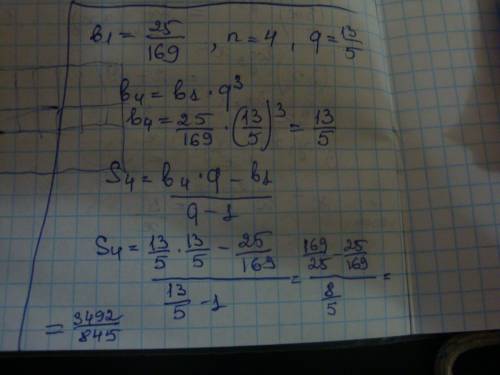 b1 = 25/169 , n = 4 , q = 13/5
b4 = b1 · q^3
b4 = 25/169 · (13/5)^3 = 13/5
S4 = (b4 · q - b1)/(q - 1)
S4 = (13/5 · 13/5 - 25/169)/(13/5 - 1) = (169/25 - 25/169)/(8/5) =
= 3492/845